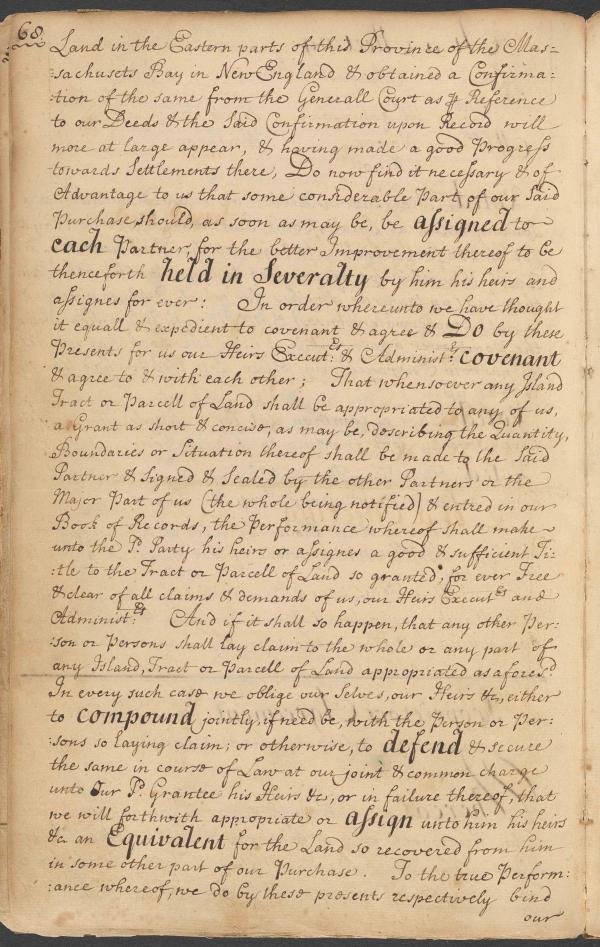 68.
Land in the Eastern parts of this Province of the Mas=
:sachusets Bay in New England & obtained a Confirma:
:tion of the same from the Generall Court as ꝑ Reference
to our Deeds & the said Confirmation upon Record will
more at large appear, & having made a good Progress
towards Settlements there, Do now find it necessary & of
Advantage to us that some considerable Part of our said
Purchase should, as soon as may be, be assigned to
each Partner, for the better Improvement thereof to be
thenceforth held in Severalty by him his heirs and
assignes for ever: In order whereunto we have thought
it equall & expedient to covenant & agree & Do by these
Presents for us our Heirs Execut:rs & Administ:rs covenant
& agree to & with each other; That whensoever any Island
Tract or Parcell of Land shall be appropriated to any of us,
a Grant as short & concise, as may be, describing the Quantity,
Boundaries or Situation thereof shall be made to the said
Partner & Signed & Sealed by the other Partners or the
Major Part of us (the whole being notified) & entred in our
Book of Records, the Performance whereof shall make
unto the sd. Party his heirs or assignes a good & sufficient Ti:
:tle to the Tract or Parcell of Land so granted, for ever Free
& clear of all claims & demands of us, our Heirs Execut:rs and
Administ:rs And if it shall so happen, that any other Per:
:son or Persons shall lay claim to the whole or any part of
any Island, Tract or Parcell of Land appropriated as aforesd.
In every such case we oblige our selves, our Heirs &c, either
to compound jointly, if need be, with the Person or Per:
:sons so laying claim; or otherwise, to defend & secure
the same in course of Law at our joint & common charge
unto Our sd. Grantee his Heirs &c, or in failure thereof, that
we will forthwith appropriate or assign unto him his heirs
&c. an Equivalent for the Land so recovered from him
in some other part of our Purchase. To the true Perform:
:ance whereof, we do by these presents respectively bind
our